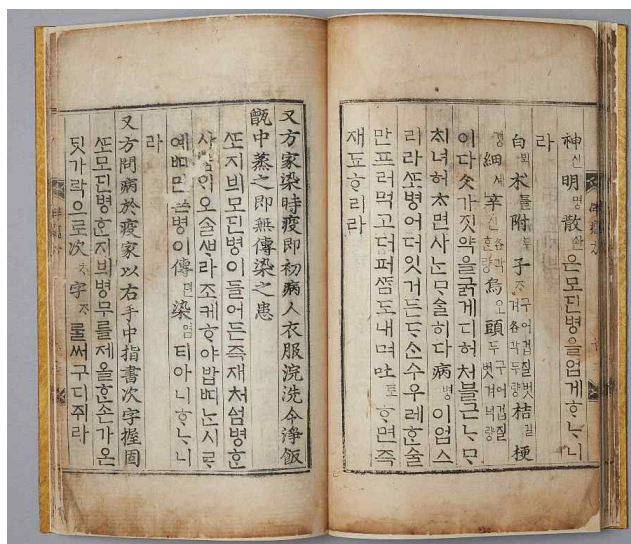 神신明명散산은모딘병을업게ᄒᆞᄂᆞ니
라
白ᄇᆡᆨ朮튤附부子ᄌᆞ구어겁질벗겨各각두량桔길梗
경細세辛신ᄒᆞᆫ량各각烏오頭두구어겁질벗겨넉량
이다ᄉᆞᆺ가짓약을굵게디허쳐블근ᄂᆞᄆᆞ
치녀허ᄎᆞ면사ᄂᆞᆫᄆᆞᄉᆞᆯ히다病병이업스
리라ᄯᅩ병어더잇거든ᄃᆞᄉᆞᆫ수우레ᄒᆞᆫ술
만프러먹고더퍼ᄯᆞᆷ도내며吐토ᄒᆞ면즉
재됴ᄒᆞ리라
又方家染時疫即初病人衣服浣洗令淨飯
甑中蒸之即無傳染之患
ᄯᅩ지븨모딘병이들어든즉재처섬병ᄒᆞᆫ
사ᄅᆞᆷ이오ᄉᆞᆯᄲᆞ라조케ᄒᆞ야밥ᄠᅵᄂᆞᆫ시ᄅᆞ
예ᄠᅵ면병이傳뎐染염티아니ᄒᆞᄂᆞ니
라
又方問病於疫家以右手中指書次字握固
ᄯᅩ모딘병ᄒᆞᆫ지븨병무를제올ᄒᆞᆫ손가온
딋가락으로次ᄎᆞ字ᄌᆞᄅᆞᆯ써구디쥐라